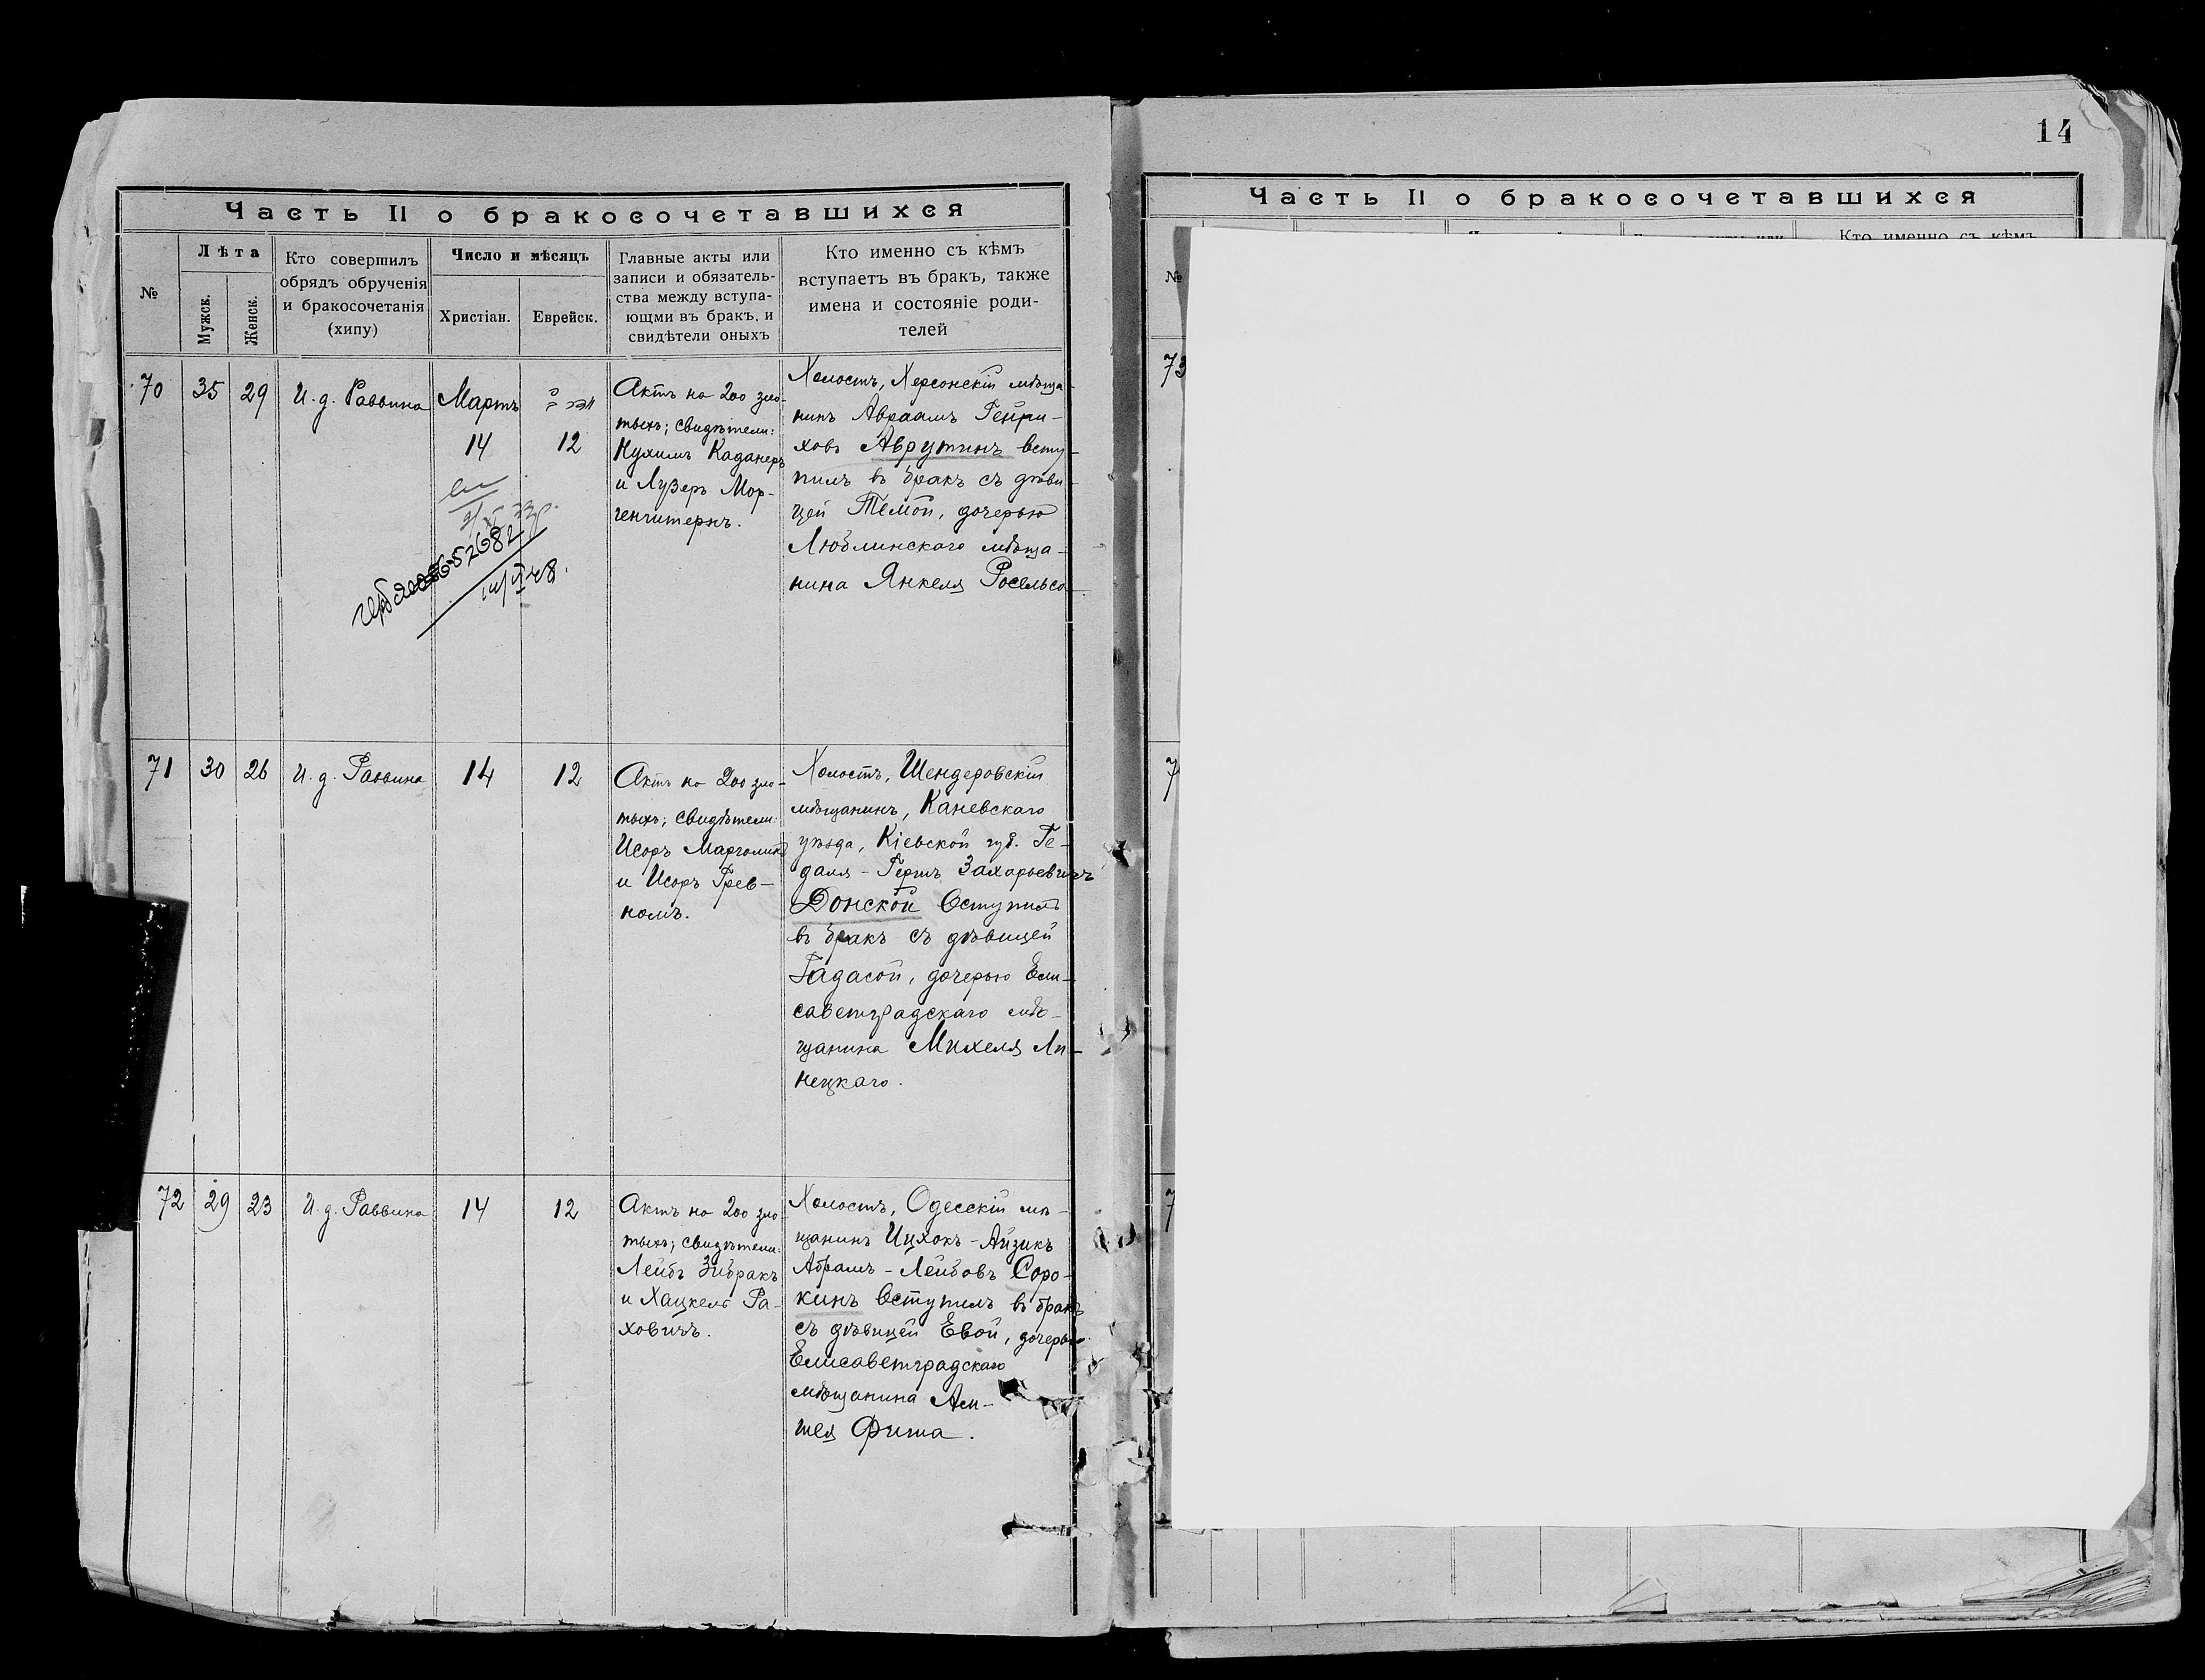 14
Часть II о бракосочетавшихся
№
Лѣта
Мужск.
Женск.
Кто совершилъ
обрядъ обрученія
и бракосочетанія
(хипу)
Число и мѣсяцъ
Христіан.
Еврейск.
Главные акты или
записи и обязатель-
ства между вступа-
ющми въ бракъ, и
свидѣтели оныхъ
Кто именно съ кѣмъ
вступаетъ въ бракъ, также
имена и состояніе роди-
телей
70
35
29
И. д. Раввина
Мартъ
14
12
Актъ на 200 зло-
тыхъ; свидѣтели:
Нухимъ Каданеръ
и Лузеръ Мор-
генштернъ.
Холостъ, Херсонскій мѣща-
нинъ Авраамъ Гейни-
ховъ Аврутинъ всту-
пилъ въ бракъ съ дѣви-
цей Темой, дочерью
Люблинскаго мѣща-
нина Янкеля
71
30
26
И. д. Раввина
14
12
Актъ на 200 зло-
тыхъ; свидѣтели:
Исоръ Марголинъ
и Исоръ Грев-
номъ.
Холостъ, Шендеровскій
мѣщанинъ, Каневскаго
уѣзда, Кіевской губ. Ге-
даля-Гершъ Захарьевичъ
Донской вступилъ
въ бракъ съ дѣвицей
Гадасой, дочерью Ели-
саветградскаго мѣ-
щанина Михеля Ли-
нецкаго.
72
29
23
И. д. Раввина
14
12
Актъ на 200 зло-
тыхъ; свидѣтели:
Лейбъ Зибракъ
и Хацкель Ра-
ховичъ.
Холостъ, Одесскій мѣ-
щанинъ Ицхокъ-Айзикъ
Абрамъ-Лейбовъ Соро-
кинъ вступилъ въ бракъ
съ дѣвицей Евой, дочерью
Елисаветградскаго
мѣщанина Ан-
шея Фиша.
Часть II о бракосочетавшихся
№
Кто именно съ кѣмъ
73